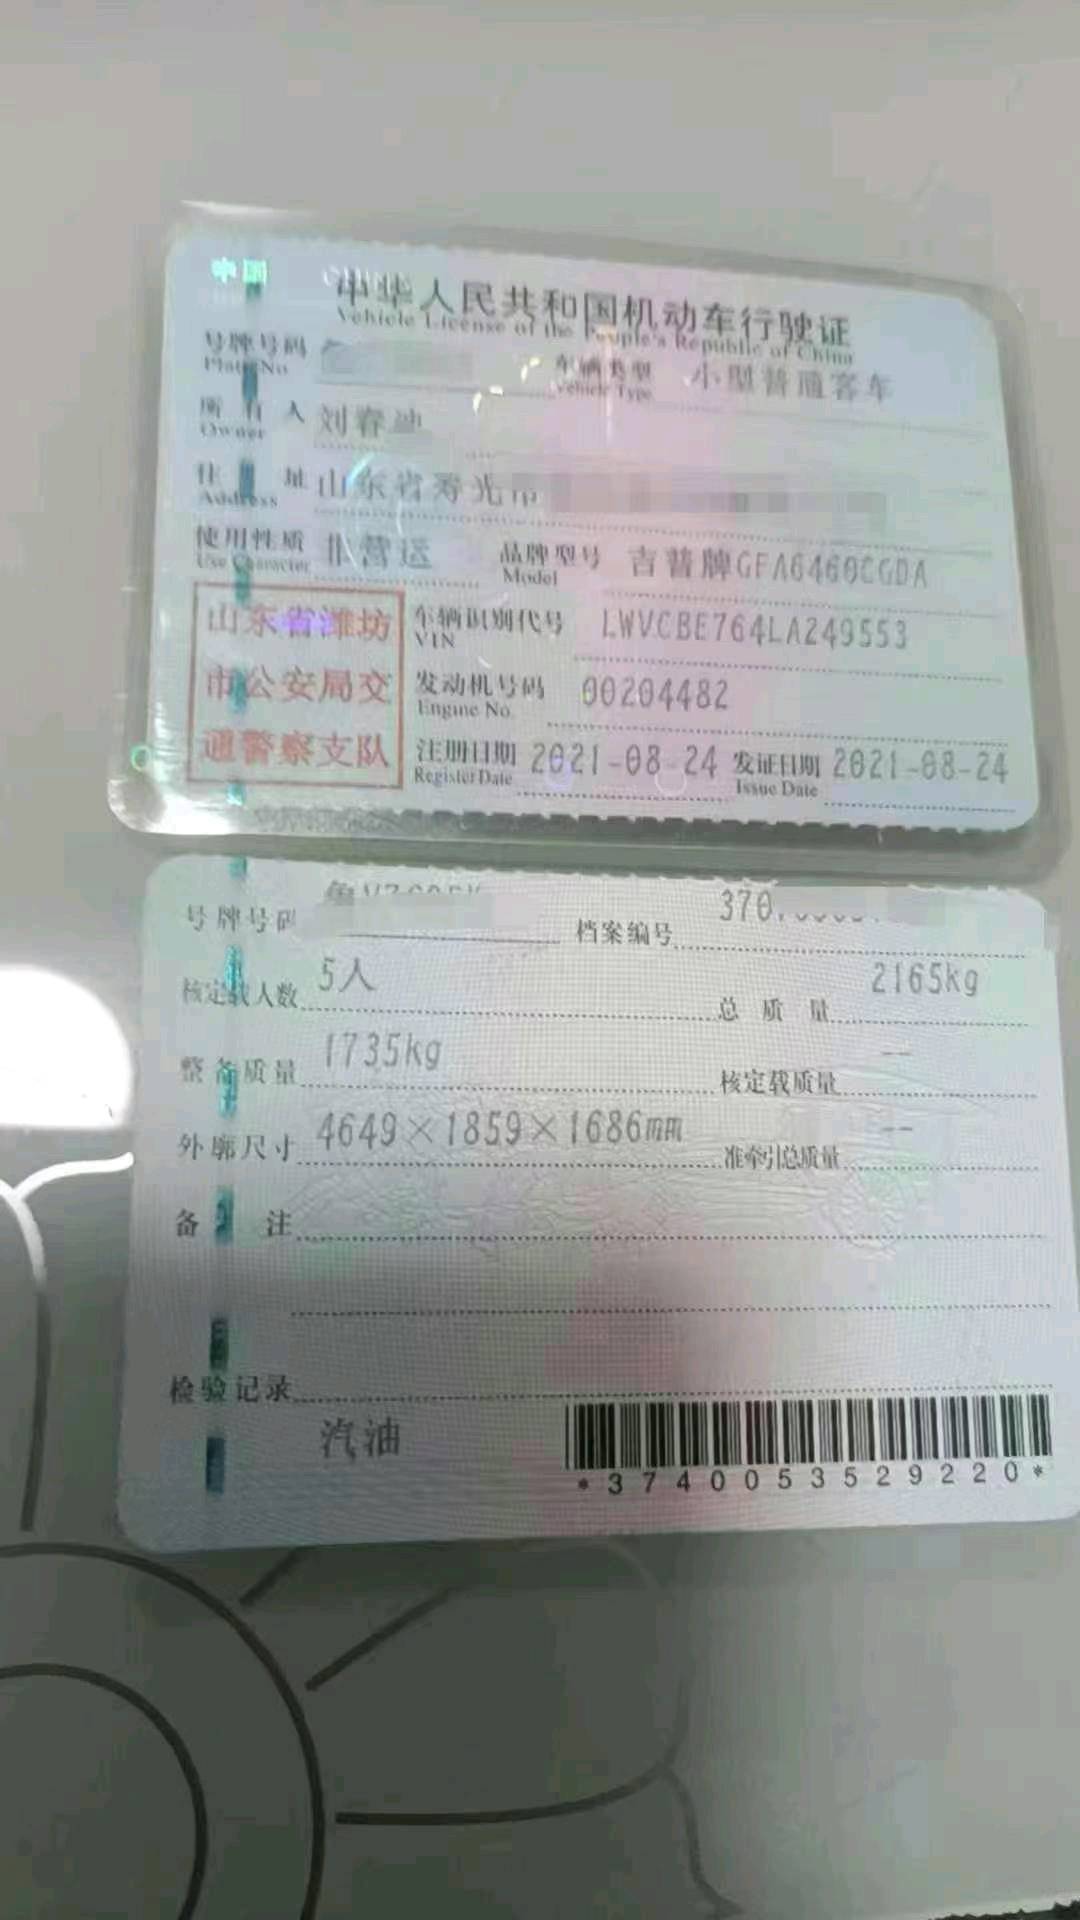 中国
中华人民共和国机动车行驶证
Vehicle License of the People's Republic of China
号牌号码 车辆类型 小型普通客车
Plate No. Vehicle Type
所有人 刘春
Owner
住址 山东省寿光市
Address
使用性质 非营运 品牌型号 吉普牌GFA6460CGDA
Use Character Model
山东省潍坊 车辆识别代号 LWVCBE764LA249553
VIN
市公安局交 发动机号码 00204482
Engine No.
通警察支队 注册日期 2021-08-24 发证日期 2021-08-24
Register Date Issue Date
号牌号码 档案编号 370
核定载人数 5人 总质量 2165kg
整备质量 1735kg 核定载质量 --
外廓尺寸 4649×1859×1686mm 准牵引总质量 --
备注
检验记录
汽油
*3740053529220*